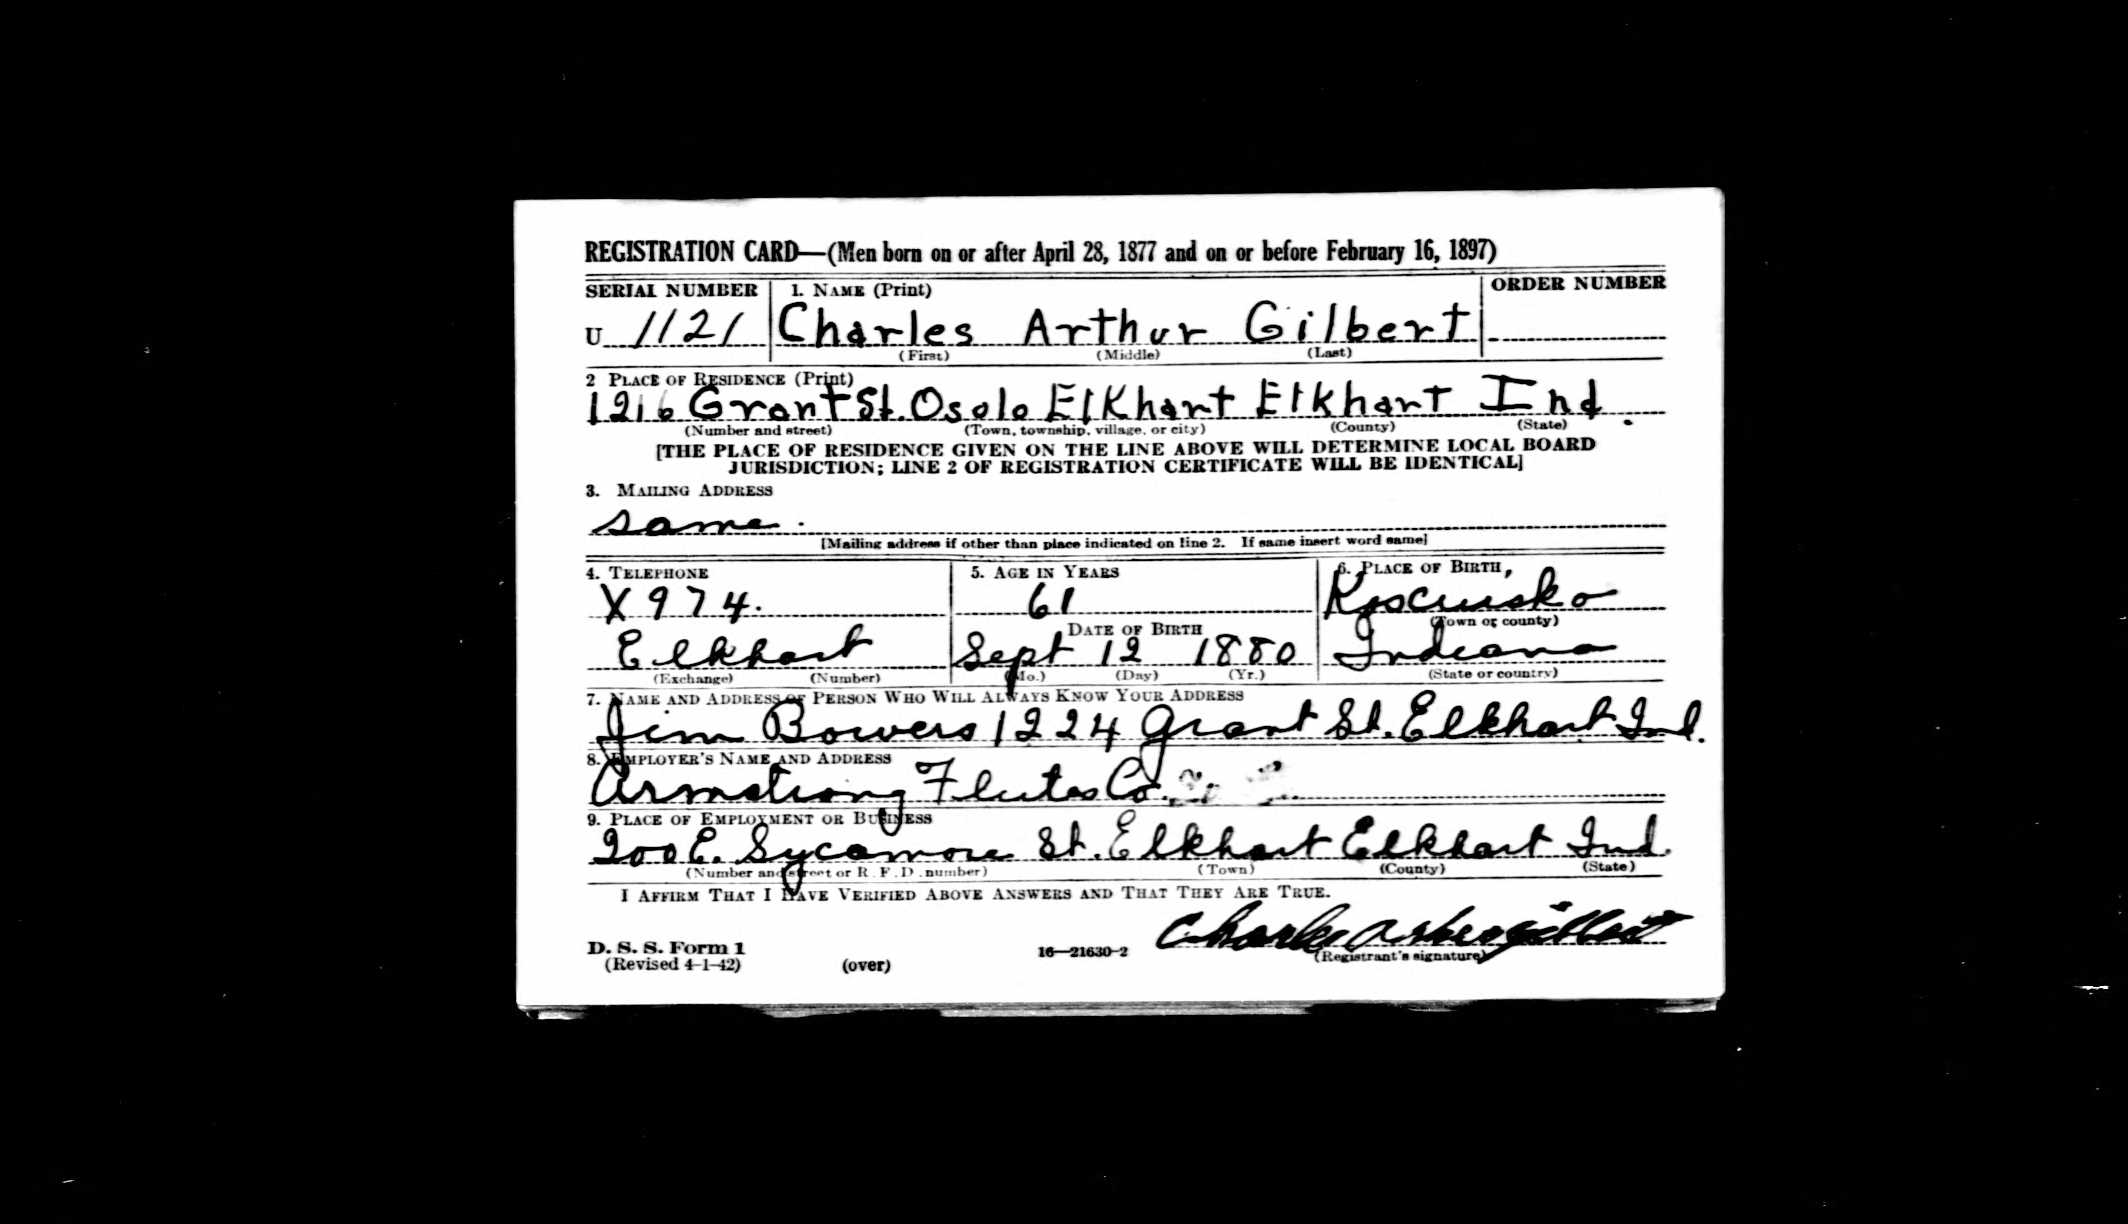 REGISTRATION CARD—(Men born on or after April 28, 1877 and on or before February 16, 1897)
SERIAL NUMBER 1. NAME (Print) ORDER NUMBER
U 1121 Charles Arthur Gilbert
(First) (Middle) (Last)
2 PLACE OF RESIDENCE (Print)
1216 Grant St. Osolo Elkhart Elkhart Ind.
(Number and street) (Town, township, village, or city) (County) (State)
[THE PLACE OF RESIDENCE GIVEN ON THE LINE ABOVE WILL DETERMINE LOCAL BOARD
JURISDICTION; LINE 2 OF REGISTRATION CERTIFICATE WILL BE IDENTICAL]
3. MAILING ADDRESS
same.
[Mailing address if other than place indicated on line 2. If same insert word same]
4. TELEPHONE 5. AGE IN YEARS 6. PLACE OF BIRTH,
X974. 61 Kosciusko
DATE OF BIRTH (Town or county)
Elkhart Sept 12 1880 Indiana
(Exchange) (Number) (Mo.) (Day) (Yr.) (State or country)
7. NAME AND ADDRESS OF PERSON WHO WILL ALWAYS KNOW YOUR ADDRESS
Jim Bowers 1224 Grant St. Elkhart Ind.
8. EMPLOYER'S NAME AND ADDRESS
Armstrong Flutes Co.
9. PLACE OF EMPLOYMENT OR BUSINESS
200 E. Sycamore St. Elkhart Elkhart Ind.
(Number and street or R. F. D. number) (Town) (County) (State)
I AFFIRM THAT I HAVE VERIFIED ABOVE ANSWERS AND THAT THEY ARE TRUE.
Charles Arthur Gilbert
D. S. S. Form 1 16—21630-2 (Registrant's signature)
(Revised 4-1-42) (over)